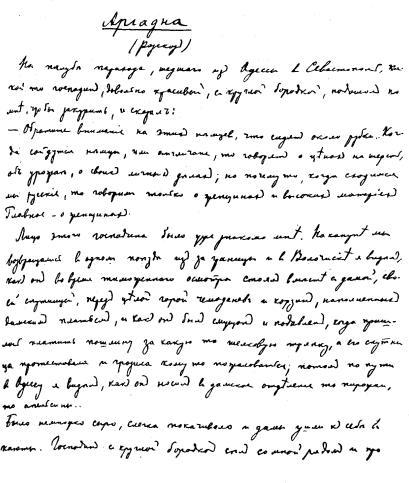 Аріадна
(Разсказ)
На палубѣ парохода, шедшаго из Одессы в Севастополь, ка-
кой-то господин, довольно красивый, с круглой бородкой, подошел ко
мнѣ, чтобы закурить, и сказал:
— Обратите вниманіе на этих нѣмцев, что сидят около рубки. Ког-
да сойдутся нѣмцы, или англичане, то говорят о цѣнах на шерсть,
об урожаѣ, о своих личных дѣлах; но почему-то, когда сходимся
мы, русскіе, то говорим только о женщинах и высоких матеріях
Главное – о женщинах.
Лицо этого господина было уже знакомо мнѣ. Наканунѣ мы
возвращались в одном поѣздѣ из-за границы и в Волочискѣ я видѣл,
как он во время таможеннаго осмотра стоял вмѣстѣ с дамой, сво-
ей спутницей, перед цѣлой горой чемоданов и корзин, наполненных
дамским платьем, и как он был смущен и подавлен, когда приш-
лось платить пошлину за какую-то шелковую тряпку, а его спутни-
ца протестовала и грозила кому-то пожаловаться; потом по пути
в Одессу я видѣл, как он носил в дамское отдѣленіе то пирожки,
то апельсины..
Было немножко сыро, слегка покачивало и дамы ушли к себѣ в
каюты. Господин с круглой бородкой сѣл со мной рядом и про